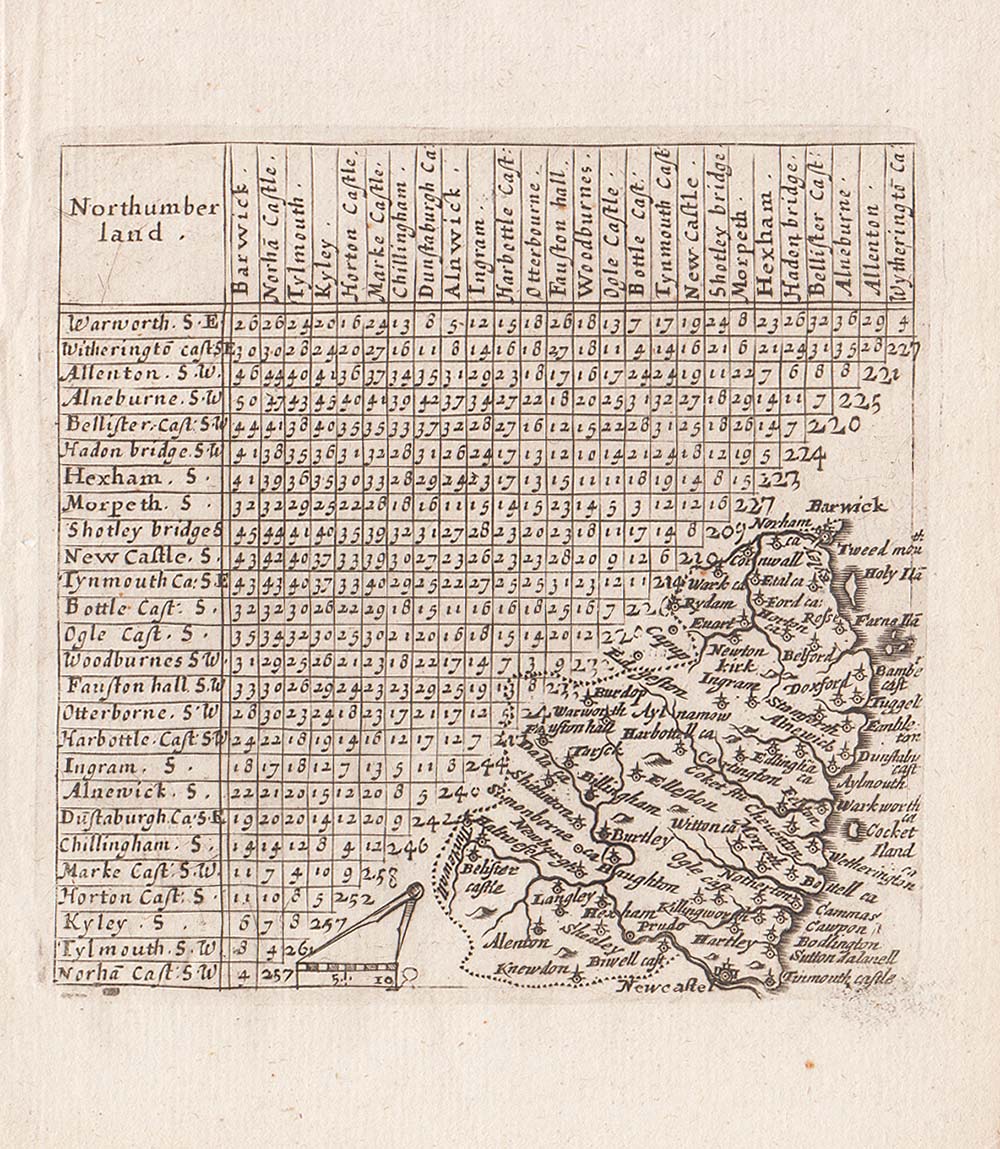 Northumber
land .
Barwick .
Norhā Castle.
Tylmouth.
Kyley .
Horton Castle.
Marke Castle.
Chillingham .
Dunstaburgh Ca:
Alnwick .
Ingram .
Harbottle Cast:
Otterbourne.
Fauston hall.
Woodburnes.
Ogle Castle.
Bottle Cast.
Tynmouth Cast
New Castle.
Shotley bridge
Morpeth.
Hexham.
Hadon bridge.
Bellister Cast:
Alneburne.
Allenton
Wytheringtō Ca:
Warworth. S.E 26 26 24 20 16 24 13 8 5 12 15 18 26 18 13 7 17 19 24 8 23 26 32 36 29 4
Witheringtō cast S E 30 30 28 24 20 27 16 11 8 14 16 18 27 18 11 4 14 16 21 6 21 24 31 35 28 227
Allenton. S.W. 46 44 40 41 36 37 34 35 31 29 23 18 17 16 17 24 24 19 11 22 7 6 8 8 221
Alneburne. S.W 50 47 43 45 40 41 39 42 37 34 27 22 18 20 25 31 32 27 18 29 14 11 7 225
Bellister. Cast: S.W 44 41 38 40 35 35 33 37 32 28 27 16 12 15 22 28 31 25 18 26 14 7 220
Hadon bridge. S.W 41 38 35 36 31 32 28 31 26 24 17 13 12 10 14 21 24 18 12 19 5 224
Hexham. S . 41 39 36 35 30 33 28 29 24 23 17 13 15 11 11 18 19 14 8 15 223
Morpeth. S 32 32 29 25 22 28 18 16 11 15 14 15 23 14 5 3 12 12 16 227
Shotley bridge S 45 44 41 40 35 39 32 31 27 28 23 20 23 18 11 17 14 8 209
New Castle. S. 43 42 40 37 33 39 30 27 23 26 23 23 28 20 9 12 6 219
Tynmouth Ca: S.E 43 43 40 37 33 40 29 25 22 27 25 25 31 23 12 11 214
Bottle Cast: S . 32 32 30 26 22 29 18 15 11 16 16 18 25 16 7
Ogle Cast. S . 35 34 32 30 25 30 21 20 16 18 15 14 20 12
Woodburnes S W 31 29 25 26 21 23 18 22 17 14 7 3 9
Fauston hall. S.W 33 30 26 29 24 23 23 29 25 19 13 8
Otterborne. S W 28 30 23 24 18 23 17 21 17 12
Harbottle. Cast: S W 24 22 18 19 14 16 12 17 12 7
Ingram. S . 18 17 18 12 7 13 5 11 8 244
Alnewick. S . 22 21 20 15 12 20 8 5 240
Dūstaburgh. Ca: S.E 19 20 20 14 12 20 9 242
Chillingham. S . 14 14 12 8 4 12 246
Marke Cast: S.W 11 7 4 10 9 258
Horton Cast: S . 11 10 8 5 252
Kyley . S . 6 7 8 257
Tylmouth. S.W 8 4 261
Norhā Cast: S.W 4 257
5
10
Barwick
Norham
ca
Cornwall
Tweed mouth
Wark ca
Etal ca
Holy Ilā
Rydam
Ford ca:
Euart
Horton
ca
Rosse
Farne Ilā
Capup
Newton
kirk
Belford
Edgeston
Ingram
Doxford
Bambe
cast
Tuggel
Burdop
Stamforth
Emble
ton
Warworth
Aylnamow
Alnewick
Fauston hall
Harbottell ca
Edlingha
ca
Dunstabu
cast
Tarset
Aylmouth
Dala ca
Cartington
Billingham
Ellesdon
Felton
Warkworth
ca
Simonborne
Witton ca
Cocket
Iland
Newburgh
Burtley
Morpeth
Wetherington
ca
Haltwesel
Haughton
Ogle cast
Notherton
Botell ca
Bellister
castle
Langley
Hexham
Killingworth
Cammas
Cawpon
Prudo
Hartley
Bodlington
Alenton
Shealey
Sutton dalanell
Knewdon
Biwell cast
Tinmouth castle
Newcastel